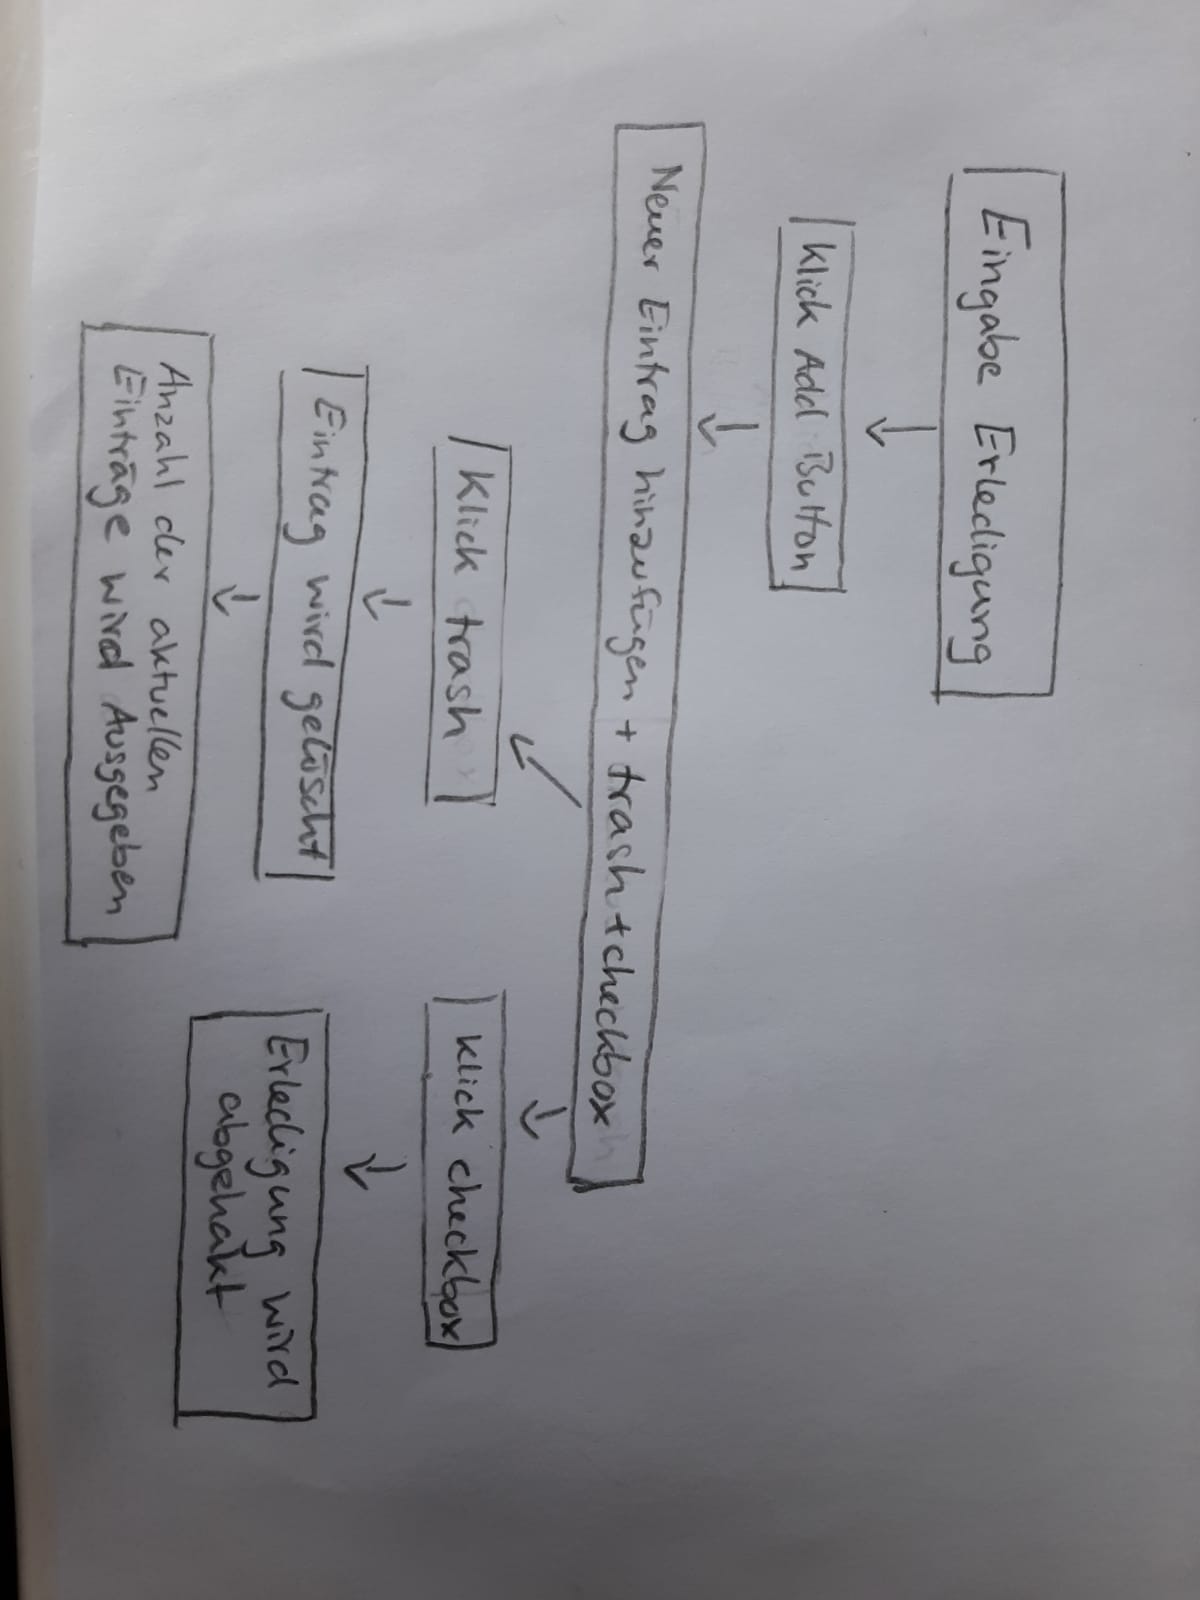 Eingabe Erledigung
Klick Add Button
Neuer Eintrag hinzufügen + trash + checkbox
Klick trash
Eintrag wird gelöscht
Anzahl der aktuellen
Einträge wird Ausgegeben
Klick checkbox
Erledigung wird
abgehakt